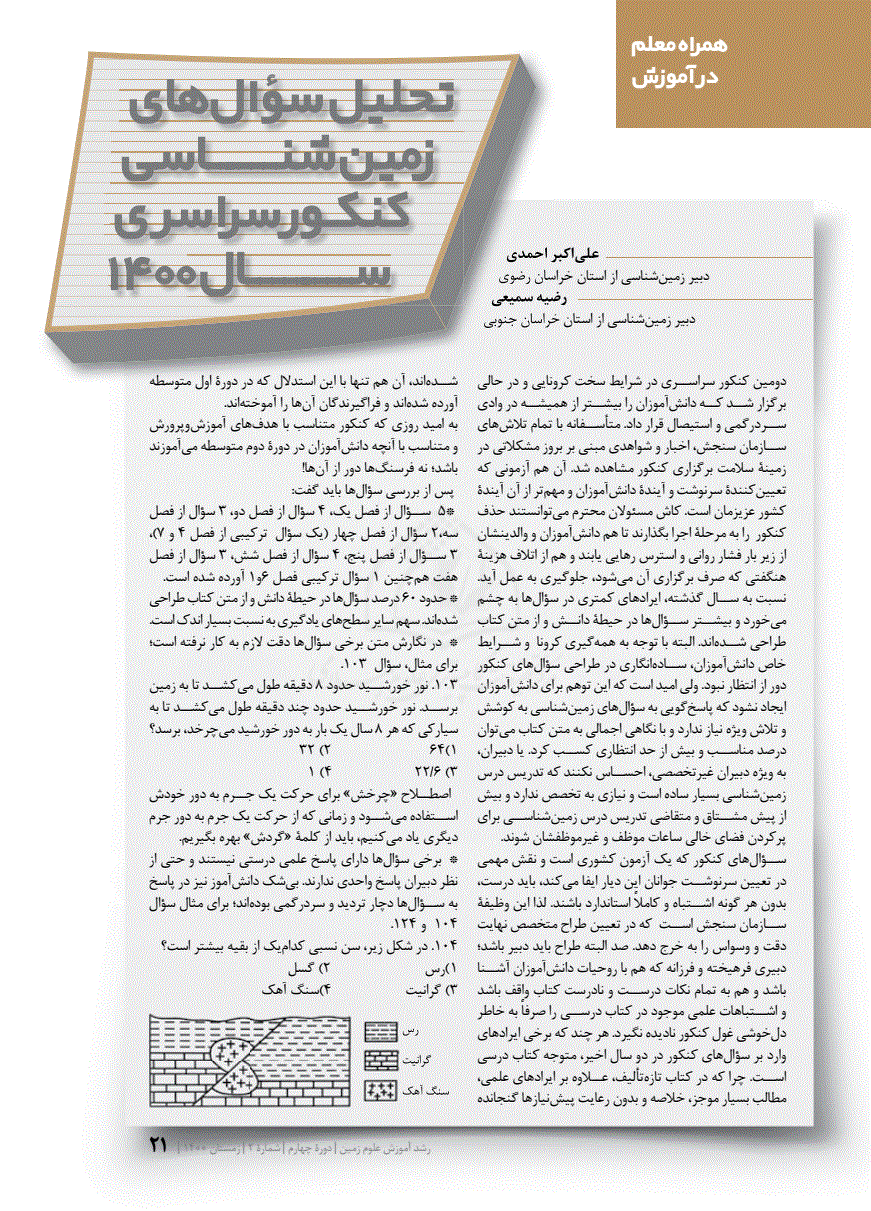 همراه معلم
در آموزش
تحلیل سؤال‌های
زمین‌شناسی
کنکور سراسری
سال ۱۴۰۰
علی‌اکبر احمدی
دبیر زمین‌شناسی از استان خراسان رضوی
رضیه سمیعی
دبیر زمین‌شناسی از استان خراسان جنوبی
دومین کنکور سراسری در شرایط سخت کرونایی و در حالی
برگزار شد که دانش‌آموزان را بیشتر از همیشه در وادی
سردرگمی و استیصال قرار داد. متأسفانه با تمام تلاش‌های
سازمان سنجش، اخبار و شواهدی مبنی بر بروز مشکلاتی در
زمینهٔ سلامت برگزاری کنکور مشاهده شد. آن هم آزمونی که
تعیین‌کنندهٔ سرنوشت و آیندهٔ دانش‌آموزان و مهم‌تر از آن آیندهٔ
کشور عزیزمان است. کاش مسئولان محترم می‌توانستند حذف
کنکور را به مرحلهٔ اجرا بگذارند تا هم دانش‌آموزان و والدینشان
از زیر بار فشار روانی و استرس رهایی یابند و هم از اتلاف هزینهٔ
هنگفتی که صرف برگزاری آن می‌شود، جلوگیری به عمل آید.
نسبت به سال گذشته، ایرادهای کمتری در سؤال‌ها به چشم
می‌خورد و بیشتر سؤال‌ها در حیطهٔ دانش و از متن کتاب
طراحی شده‌اند. البته با توجه به همه‌گیری کرونا و شرایط
خاص دانش‌آموزان، ساده‌انگاری در طراحی سؤال‌های کنکور
دور از انتظار نبود. ولی امید است که این توهم برای دانش‌آموزان
ایجاد نشود که پاسخ‌گویی به سؤال‌های زمین‌شناسی به کوشش
و تلاش ویژه نیاز ندارد و با نگاهی اجمالی به متن کتاب می‌توان
درصد مناسب و بیش از حد انتظاری کسب کرد. یا دبیران،
به ویژه دبیران غیرتخصصی، احساس نکنند که تدریس درس
زمین‌شناسی بسیار ساده است و نیازی به تخصص ندارد و بیش
از پیش مشتاق و متقاضی تدریس درس زمین‌شناسی برای
پرکردن فضای خالی ساعات موظف و غیرموظفشان شوند.
سؤال‌های کنکور که یک آزمون کشوری است و نقش مهمی
در تعیین سرنوشت جوانان این دیار ایفا می‌کند، باید درست،
بدون هر گونه اشتباه و کاملاً استاندارد باشند. لذا این وظیفهٔ
سازمان سنجش است که در تعیین طراح متخصص نهایت
دقت و وسواس را به خرج دهد. صد البته طراح باید دبیر باشد؛
دبیری فرهیخته و فرزانه که هم با روحیات دانش‌آموزان آشنا
باشد و هم به تمام نکات درست و نادرست کتاب واقف باشد
و اشتباهات علمی موجود در کتاب درسی را صرفاً به خاطر
دل‌خوشی غول کنکور نادیده نگیرد. هر چند که برخی ایرادهای
وارد بر سؤال‌های کنکور در دو سال اخیر، متوجه کتاب درسی
است. چرا که در کتاب تازه‌تألیف، علاوه بر ایرادهای علمی،
مطالب بسیار موجز، خلاصه و بدون رعایت پیش‌نیازها گنجانده
شده‌اند، آن هم تنها با این استدلال که در دورهٔ اول متوسطه
آورده شده‌اند و فراگیرندگان آن‌ها را آموخته‌اند.
به امید روزی که کنکور متناسب با هدف‌های آموزش‌وپرورش
و متناسب با آنچه دانش‌آموزان در دورهٔ دوم متوسطه می‌آموزند
باشد؛ نه فرسنگ‌ها دور از آن‌ها!
پس از بررسی سؤال‌ها باید گفت:
* ۵ سؤال از فصل یک، ۴ سؤال از فصل دو، ۳ سؤال از فصل
سه،۲ سؤال از فصل چهار (یک سؤال ترکیبی از فصل ۴ و ۷)،
۳ سؤال از فصل پنج، ۴ سؤال از فصل شش، ۳ سؤال از فصل
هفت هم‌چنین ۱ سؤال ترکیبی فصل ۶و۱ آورده شده است.
* حدود ۶۰ درصد سؤال‌ها در حیطهٔ دانش و از متن کتاب طراحی
شده‌اند. سهم سایر سطح‌های یادگیری به نسبت بسیار اندک است.
* در نگارش متن برخی سؤال‌ها دقت لازم به کار نرفته است؛
برای مثال، سؤال ۱۰۳.
۱۰۳. نور خورشید حدود ۸ دقیقه طول می‌کشد تا به زمین
برسد. نور خورشید حدود چند دقیقه طول می‌کشد تا به
سیارکی که هر ۸ سال یک بار به دور خورشید می‌چرخد، برسد؟
۱)۶۴ ۲) ۳۲
۳) ۲۲/۶ ۴) ۱
اصطلاح «چرخش» برای حرکت یک جرم به دور خودش
استفاده می‌شود و زمانی که از حرکت یک جرم به دور جرم
دیگری یاد می‌کنیم، باید از کلمهٔ «گردش» بهره بگیریم.
* برخی سؤال‌ها دارای پاسخ علمی درستی نیستند و حتی از
نظر دبیران پاسخ واحدی ندارند. بی‌شک دانش‌آموز نیز در پاسخ
به سؤال‌ها دچار تردید و سردرگمی بوده‌اند؛ برای مثال سؤال
۱۰۴ و ۱۲۴.
۱۰۴. در شکل زیر، سن نسبی کدام‌یک از بقیه بیشتر است؟
۱)رس ۲) گسل
۳) گرانیت ۴)سنگ آهک
رس
گرانیت
سنگ آهک
رشد آموزش علوم زمین | دورهٔ چهارم | شمارهٔ ۲ | زمستان ۱۴۰۰ | ۲۱